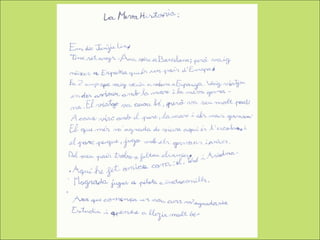 La Meva Història:
Em dic Junjie Lin,
Tinc set anys. Ara visc a Barcelona; però vaig
néixer a Espanya que és un país d'Europa
Fa 2 anys que vaig venir a viure a Espanya. Vaig viatjar
en des avions, amb la mare i la meva germa-
na. El viatge va anar bé, però va ser molt
A casa visc amb el pare, la mare i els meus germans
El que més m'agrada de viure aquí és l'escola, i
el parc perquè, jugo amb els germans i pares.
Del meu país trobo a faltar
Aquí he fet amics com: el, i Ariadna
M'agrada jugar a pilota a
Ara que comença un nou curs m'agradaria
Estudiar i aprendre a llegir molt bé